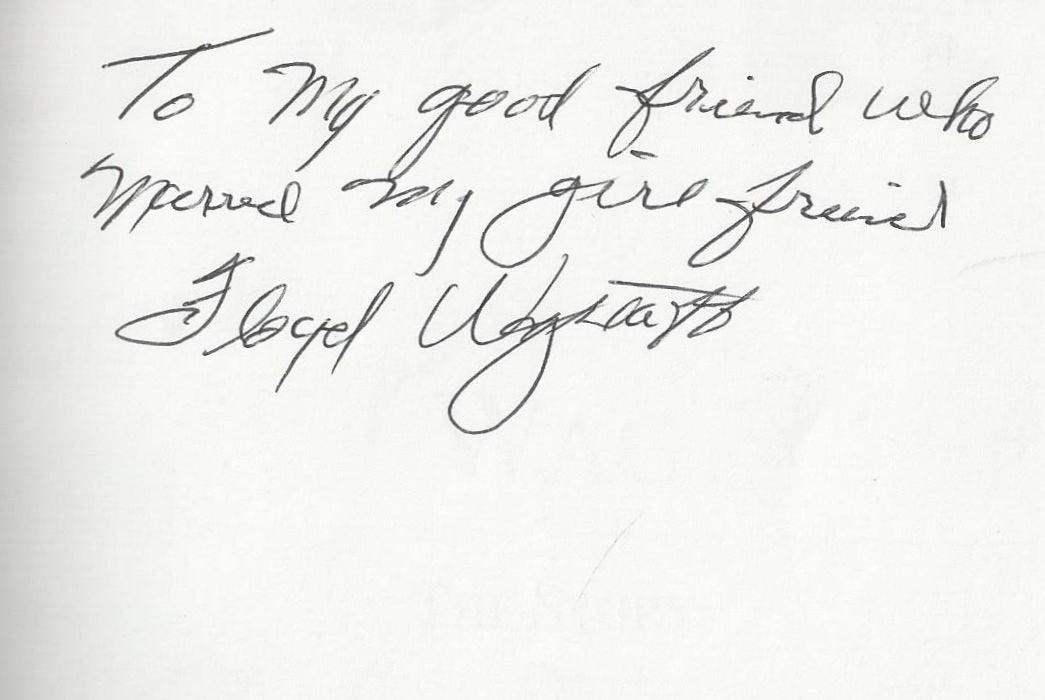 To My good friend who
Married my girl friend
Floyd Wagstaff